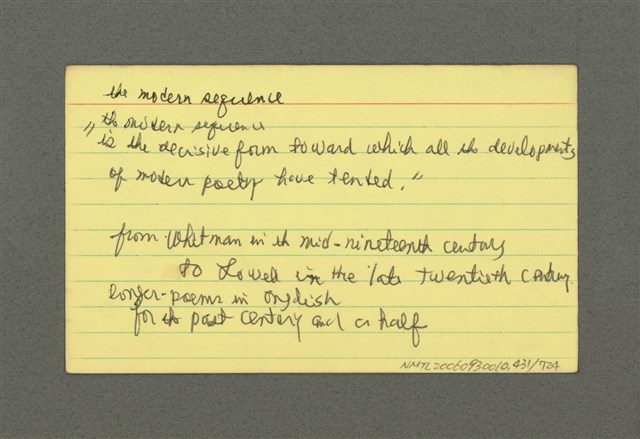 the modern sequence
"the modern sequence
is the decisive form toward which all the developments
of modern poetry have tended."
from Whitman in the mid-nineteenth century
to Lowell in the late twentieth century
longer-poems in English
for the past century and a half
NMTL20060930010,431/724